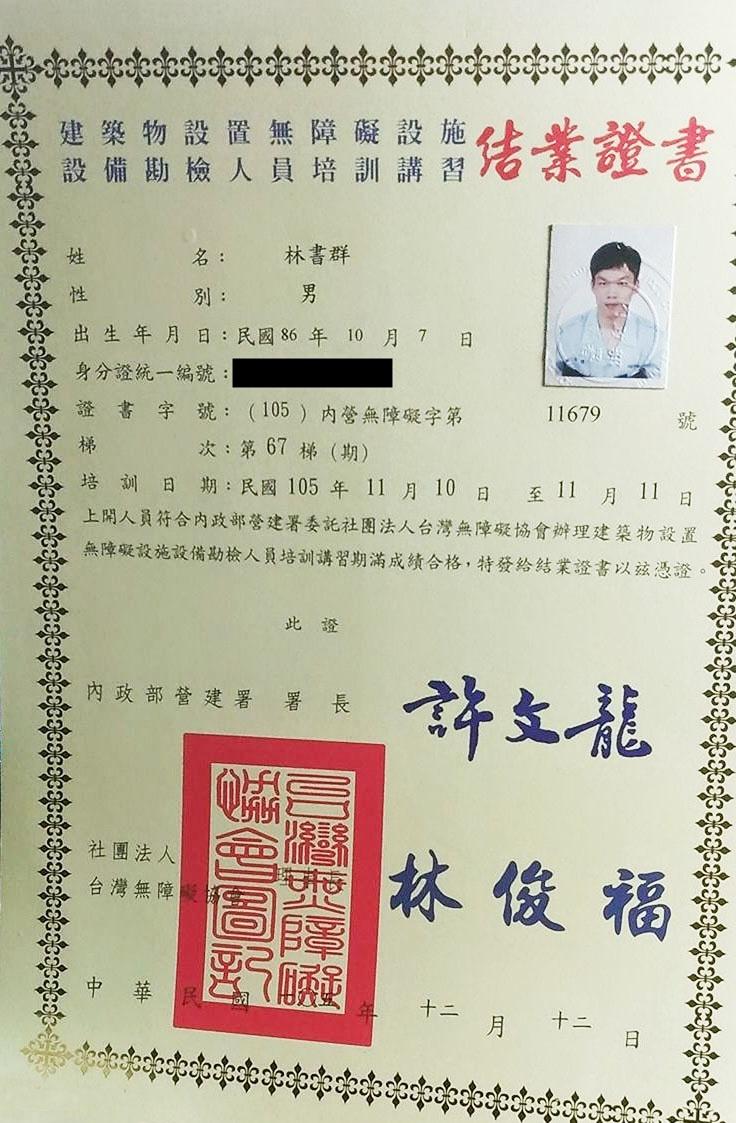 建築物設置無障礙設施
設備勘檢人員培訓講習
結業證書
姓名：林書群
性別：男
出生年月日：民國86年10月7日
身分證統一編號：
證書字號：(105)內營無障礙字第11679號
梯次：第67梯(期)
培訓日期：民國105年11月10日至11月11日
上開人員符合內政部營建署委託社團法人台灣無障礙協會辦理建築物設置
無障礙設施設備勘檢人員培訓講習期滿成績合格，特發給結業證書以玆憑證。
此證
內政部營建署署長 許文龍
社團法人
台灣無障礙協會 理事長 林俊福
台灣無障礙協會圖記
中華民國 年十二月十二日